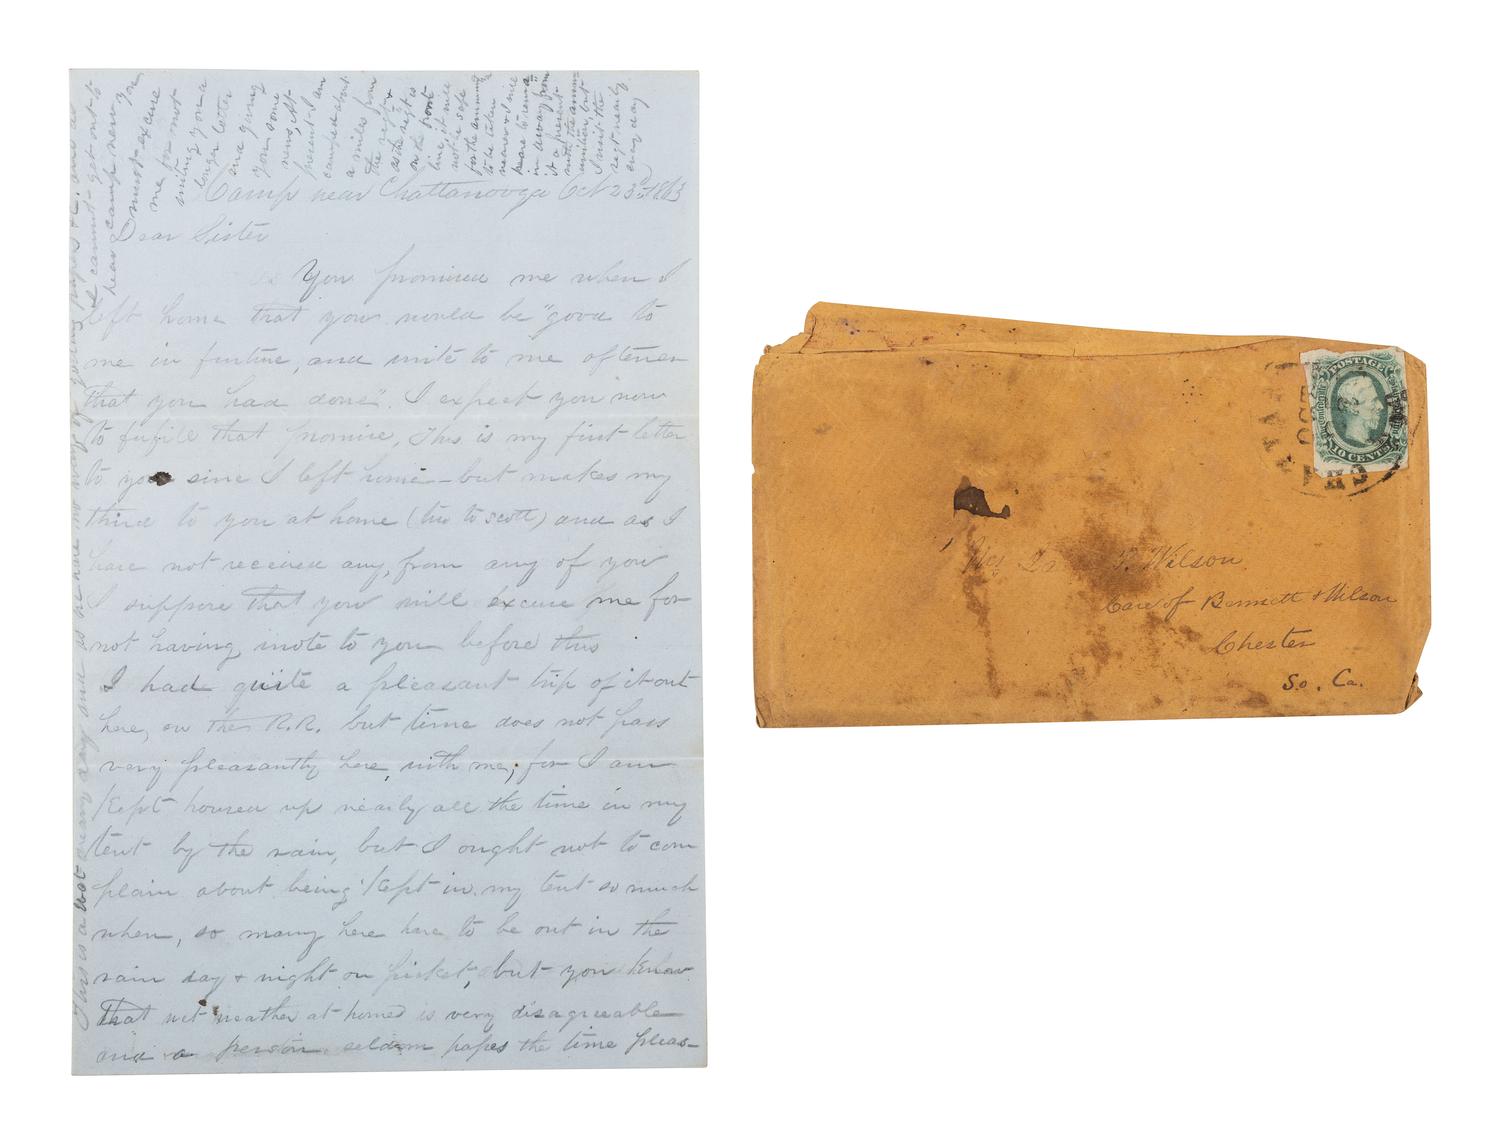 Camp near Chattanooga Oct 23rd 1863
Dear Sister
You promised me when I
left home that you would be "good to
me in furture, and write to me oftener
that you had done". I expect you now
to fufile that promise, This is my first letter
to you since I left home - but makes my
third to you at home (two to scott) and as I
have not received any, from any of you
I suppose that you will excuse me for
not having wrote to you before this
I had quite a pleasant trip of it out
here, on the R.R. but time does not pass
very pleasantly here, with me, for I am
Kept housed up nearly all the time in my
tent by the rain, but I ought not to com
plain about being Kept in my tent so much
when, so many here have to be out in the
rain day & night on picket, but you Know
that wet weather at home is very disagreeable
and a person seldom passes the time pleas-
I cannot get out to
hear camp news you
must excuse
me for not
writing you a
longer letter
and giving
you some
news, At
present I am
camped about
a miles from
the regt &
as the regt is
on the front
line, it will
not be safe
for the
to be taken
nearer & I will
have to remain
in away from
it a present
with the amm
unition, but
I visit the
regt nearly
every day
This is a wet dreary day and as we have no way of getting papers &c. and as
CHATTA
OCT
POSTAGE
10 CENTS
T. Wilson
Care of Bennett & Wilson
Chester
So. Ca.